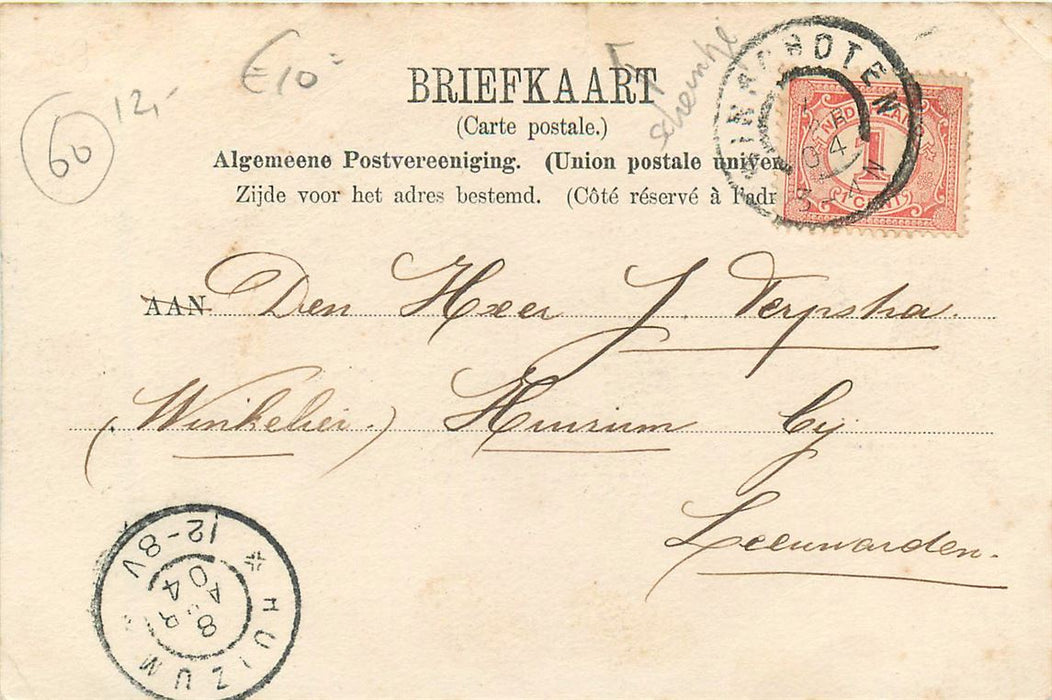 € 10
12,-
60
BRIEFKAART
(Carte postale.)
Algemeene Postvereeniging. (Union postale univer
Zijde voor het adres bestemd. (Côté réservé à l'adr
NEDERLAND
1
1 CENT
AAN Den Heer J. Terpstra.
(Winkelier.) Huizum by
Leeuwarden.
HUIZUM
12-8V
8 APR 04